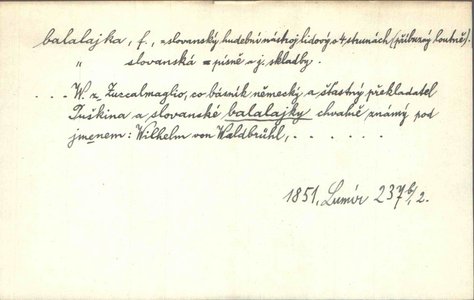 balalajka, f., = slovanský hudební nástroj lidový o 4 strunách (příbuzný loutně).
" slovanská = písně a j. skladby.
. . . W z Zuccalmaglio, co básník německý a šťastný překladatel
Puškina a slovanské balalajky chvalně známý pod
jmenem: Wilhelm von Waldbrühl, . . . . . .
1851, Lumír 237 b/2.